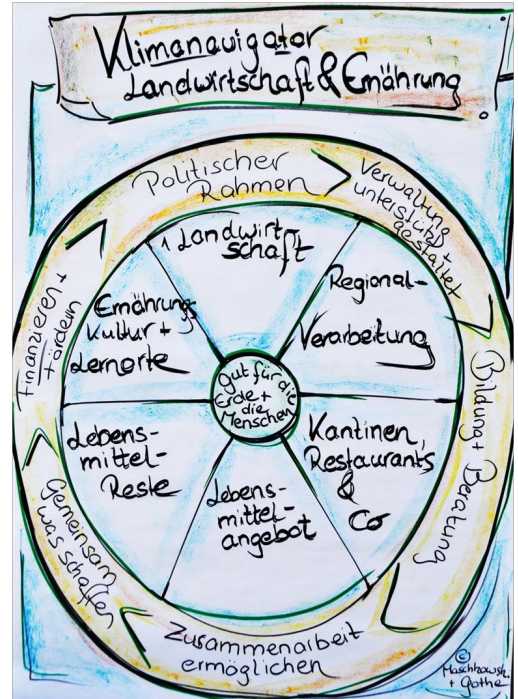 Klimanavigator
Landwirtschaft & Ernährung
Politischer
Rahmen
Verwaltung
unterstützt +
gestaltet
Bildung + Beratung
Zusammenarbeit
ermöglichen
Gemeinsam
was schaffen
Finanzieren +
fördern
1 Landwirt-
schaft
Regional-
Verarbeitung
Kantinen,
Restaurants
&
Co
Lebens-
mittel-
angebot
Lebens-
mittel-
Reste
Ernährungs-
kultur +
Lernorte
Gut für die
Erde +
die
Menschen
©
+ Gothe